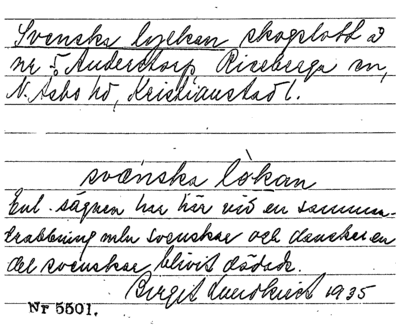 Svenska lyckan skogslott å
nr 5 Anderstorp Riseberga sn,
N. Åsbo hd, Kristianstad l.
svænska lòkan
Enl. sägnen har här vid en samman-
drabbning mln svenskar och danskar en
del svenskar blivit dödade.
Birgit Lundkvist 1935
Nr 5501.